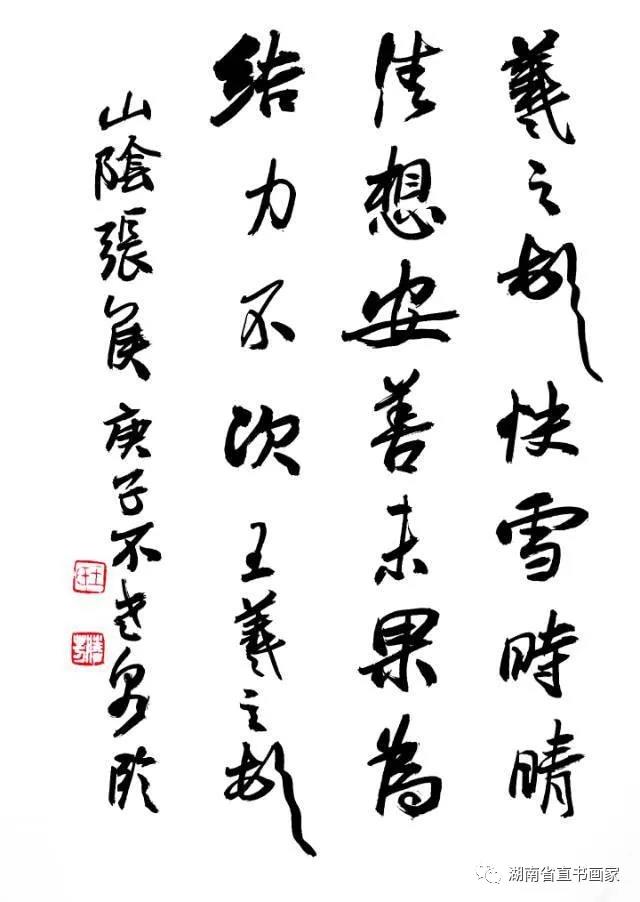 羲之頓快雪時晴
佳想安善未果為
結力不次王羲之頓
山陰張侯庚子不老泉臨
湖南省直书画家